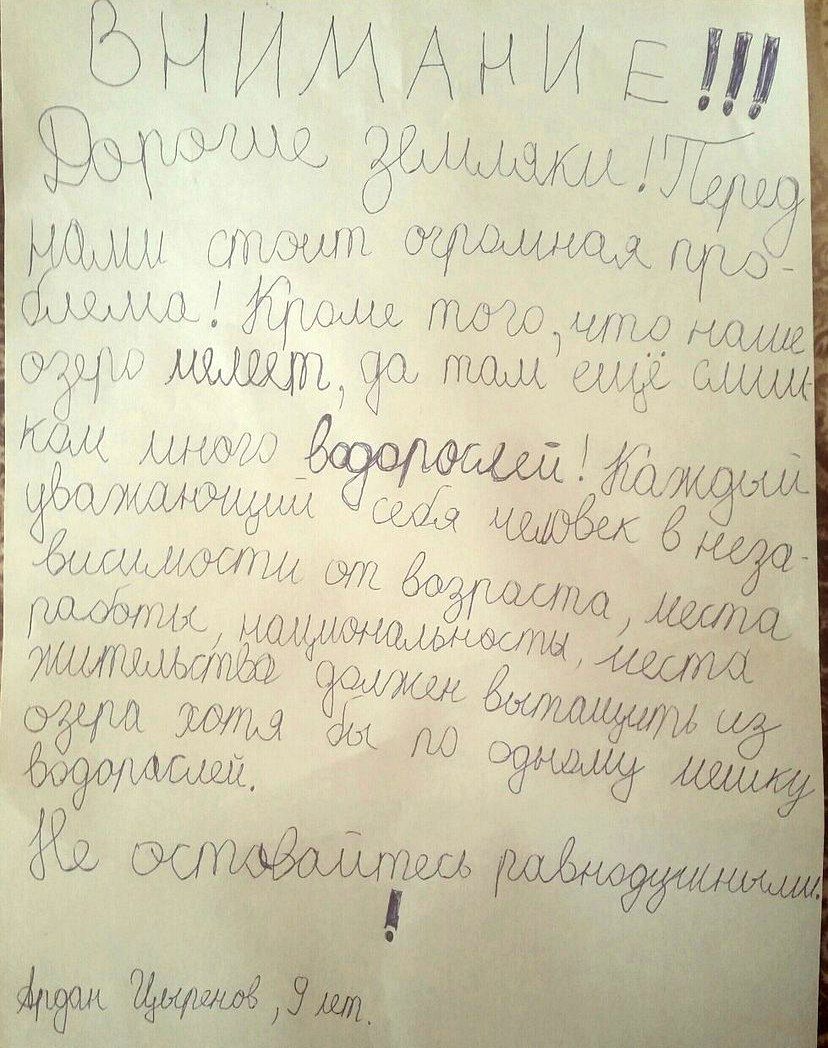 ВНИМАНИЕ!!!
Дорогие земляки! Перед
нами стоит огромная про-
блема! Кроме того, что наше
озеро мелеет, да там ещё слиш-
ком много водорослей! Каждый
уважающий себя человек в неза-
висимости от возраста, места
работы, национальносты, места
жительства должен вытащить из
озера хотя бы по одному мешку
водораслей.
Не оставайтесь равнодушными.
!
Ардан Цыренов, 9 лет.